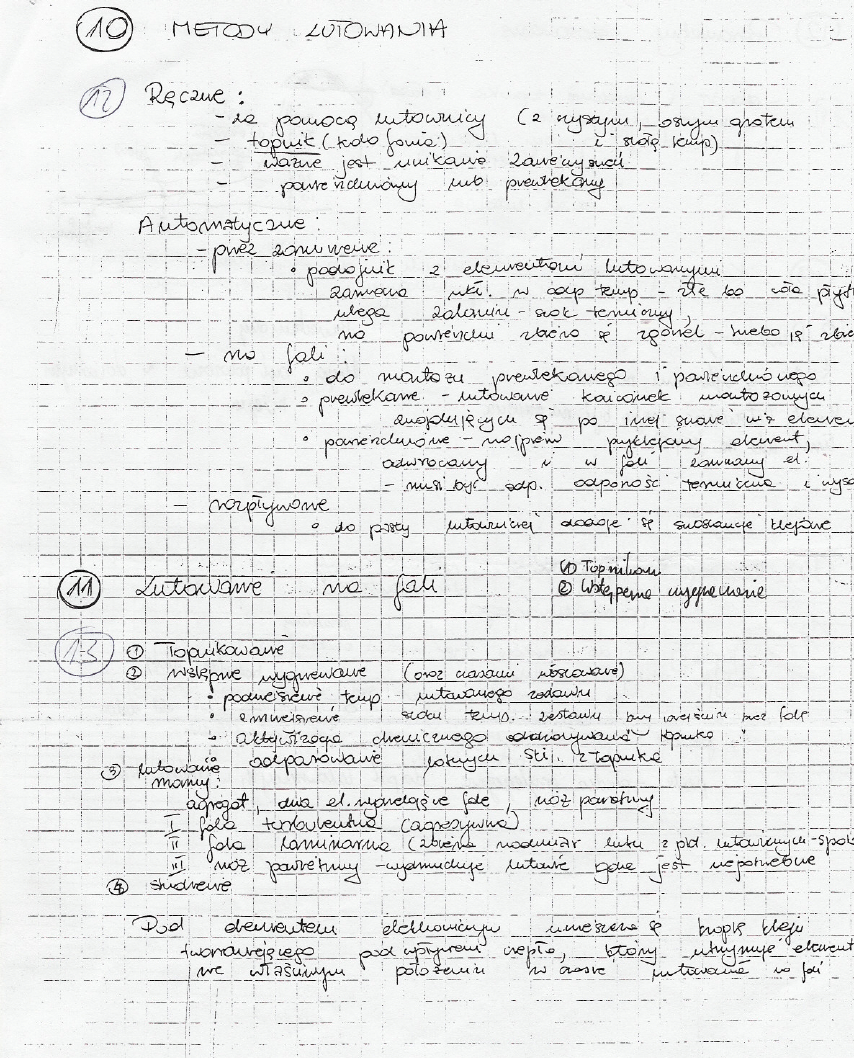 10 METODY LUTOWANIA
12 Ręczne:
- za pomocą lutownicy (z czystym, ostrym grotem
- topnik (kalafonia) i stałą temp)
- ważne jest unikanie zanieczyszczeń
- powierzchniowy lub przewlekany
Automatyczne:
- przez zanurzenie:
• podajnik z elementami lutowanymi
zanurza ukł. w odp temp - złe bo cała płyt
ulega zanurzeniu - szok termiczny,
na powierzchni zbiera się zgorzel - trzeba ją zbie
- na fali:
• do montażu przewlekanego i powierzchniowego
• przewlekane - lutowanie końcówek montażowych
znajdujących się po innej stronie niż elemen
• powierzchniowe - najpierw przyklejamy element,
odwracamy i w fali zanurzamy el.
- musi być odp. odporność termiczna i wyso
- rozpływowe
• do pasty lutowniczej dodaje się substancje klejowe
11 Lutowanie na fali
① Topnikow
② Wstępne wygrzewanie
13 ① Topnikowanie
② Wstępne wygrzewanie (oraz czasami
• podniesienie temp lutowanego zestawu
• zmniejszenie szoku temp. zestawu przy przejściu przez falę
• aktywizacja chemicznego topnika
• odparowanie lotnych skł. z topnika
③ lutowanie
mamy:
agregat, dwa el. wytwarzające falę, nóż powietrzny
I fala turbulentna (agresywna)
II fala laminarna (zbiera nadmiar lutu z pól lutowniczych - spok
III nóż powietrzny - wydmuchuje lutowie gdzie jest niepotrzebne
④ studzenie
Pod elementem elektronicznym umieszcza się kroplę kleju
twardniejącego pod wpływem ciepła, który utrzymuje element
we właściwym położeniu w czasie lutowania na fali